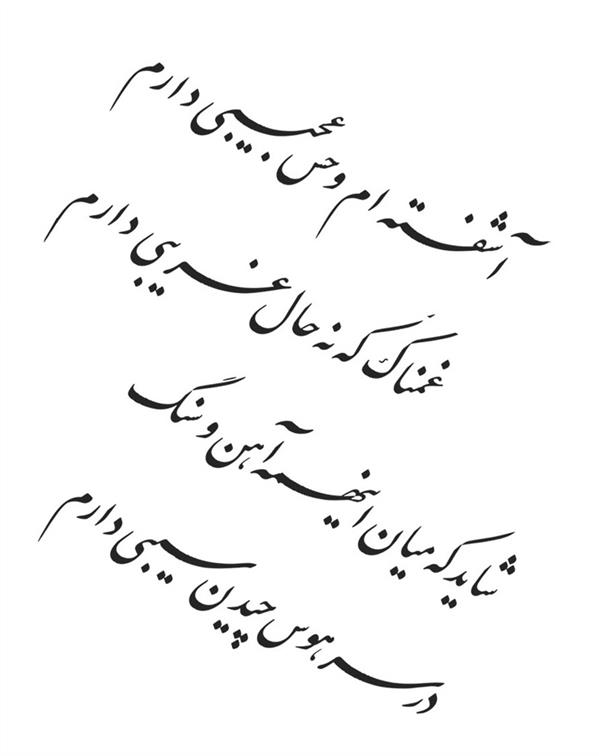 آشفته ام و حس عجیبی دارم
غمناک که نه حال غریبی دارم
شاید که میان اینهمه آهن و سنگ
در سر هوس چیدن سیبی دارم